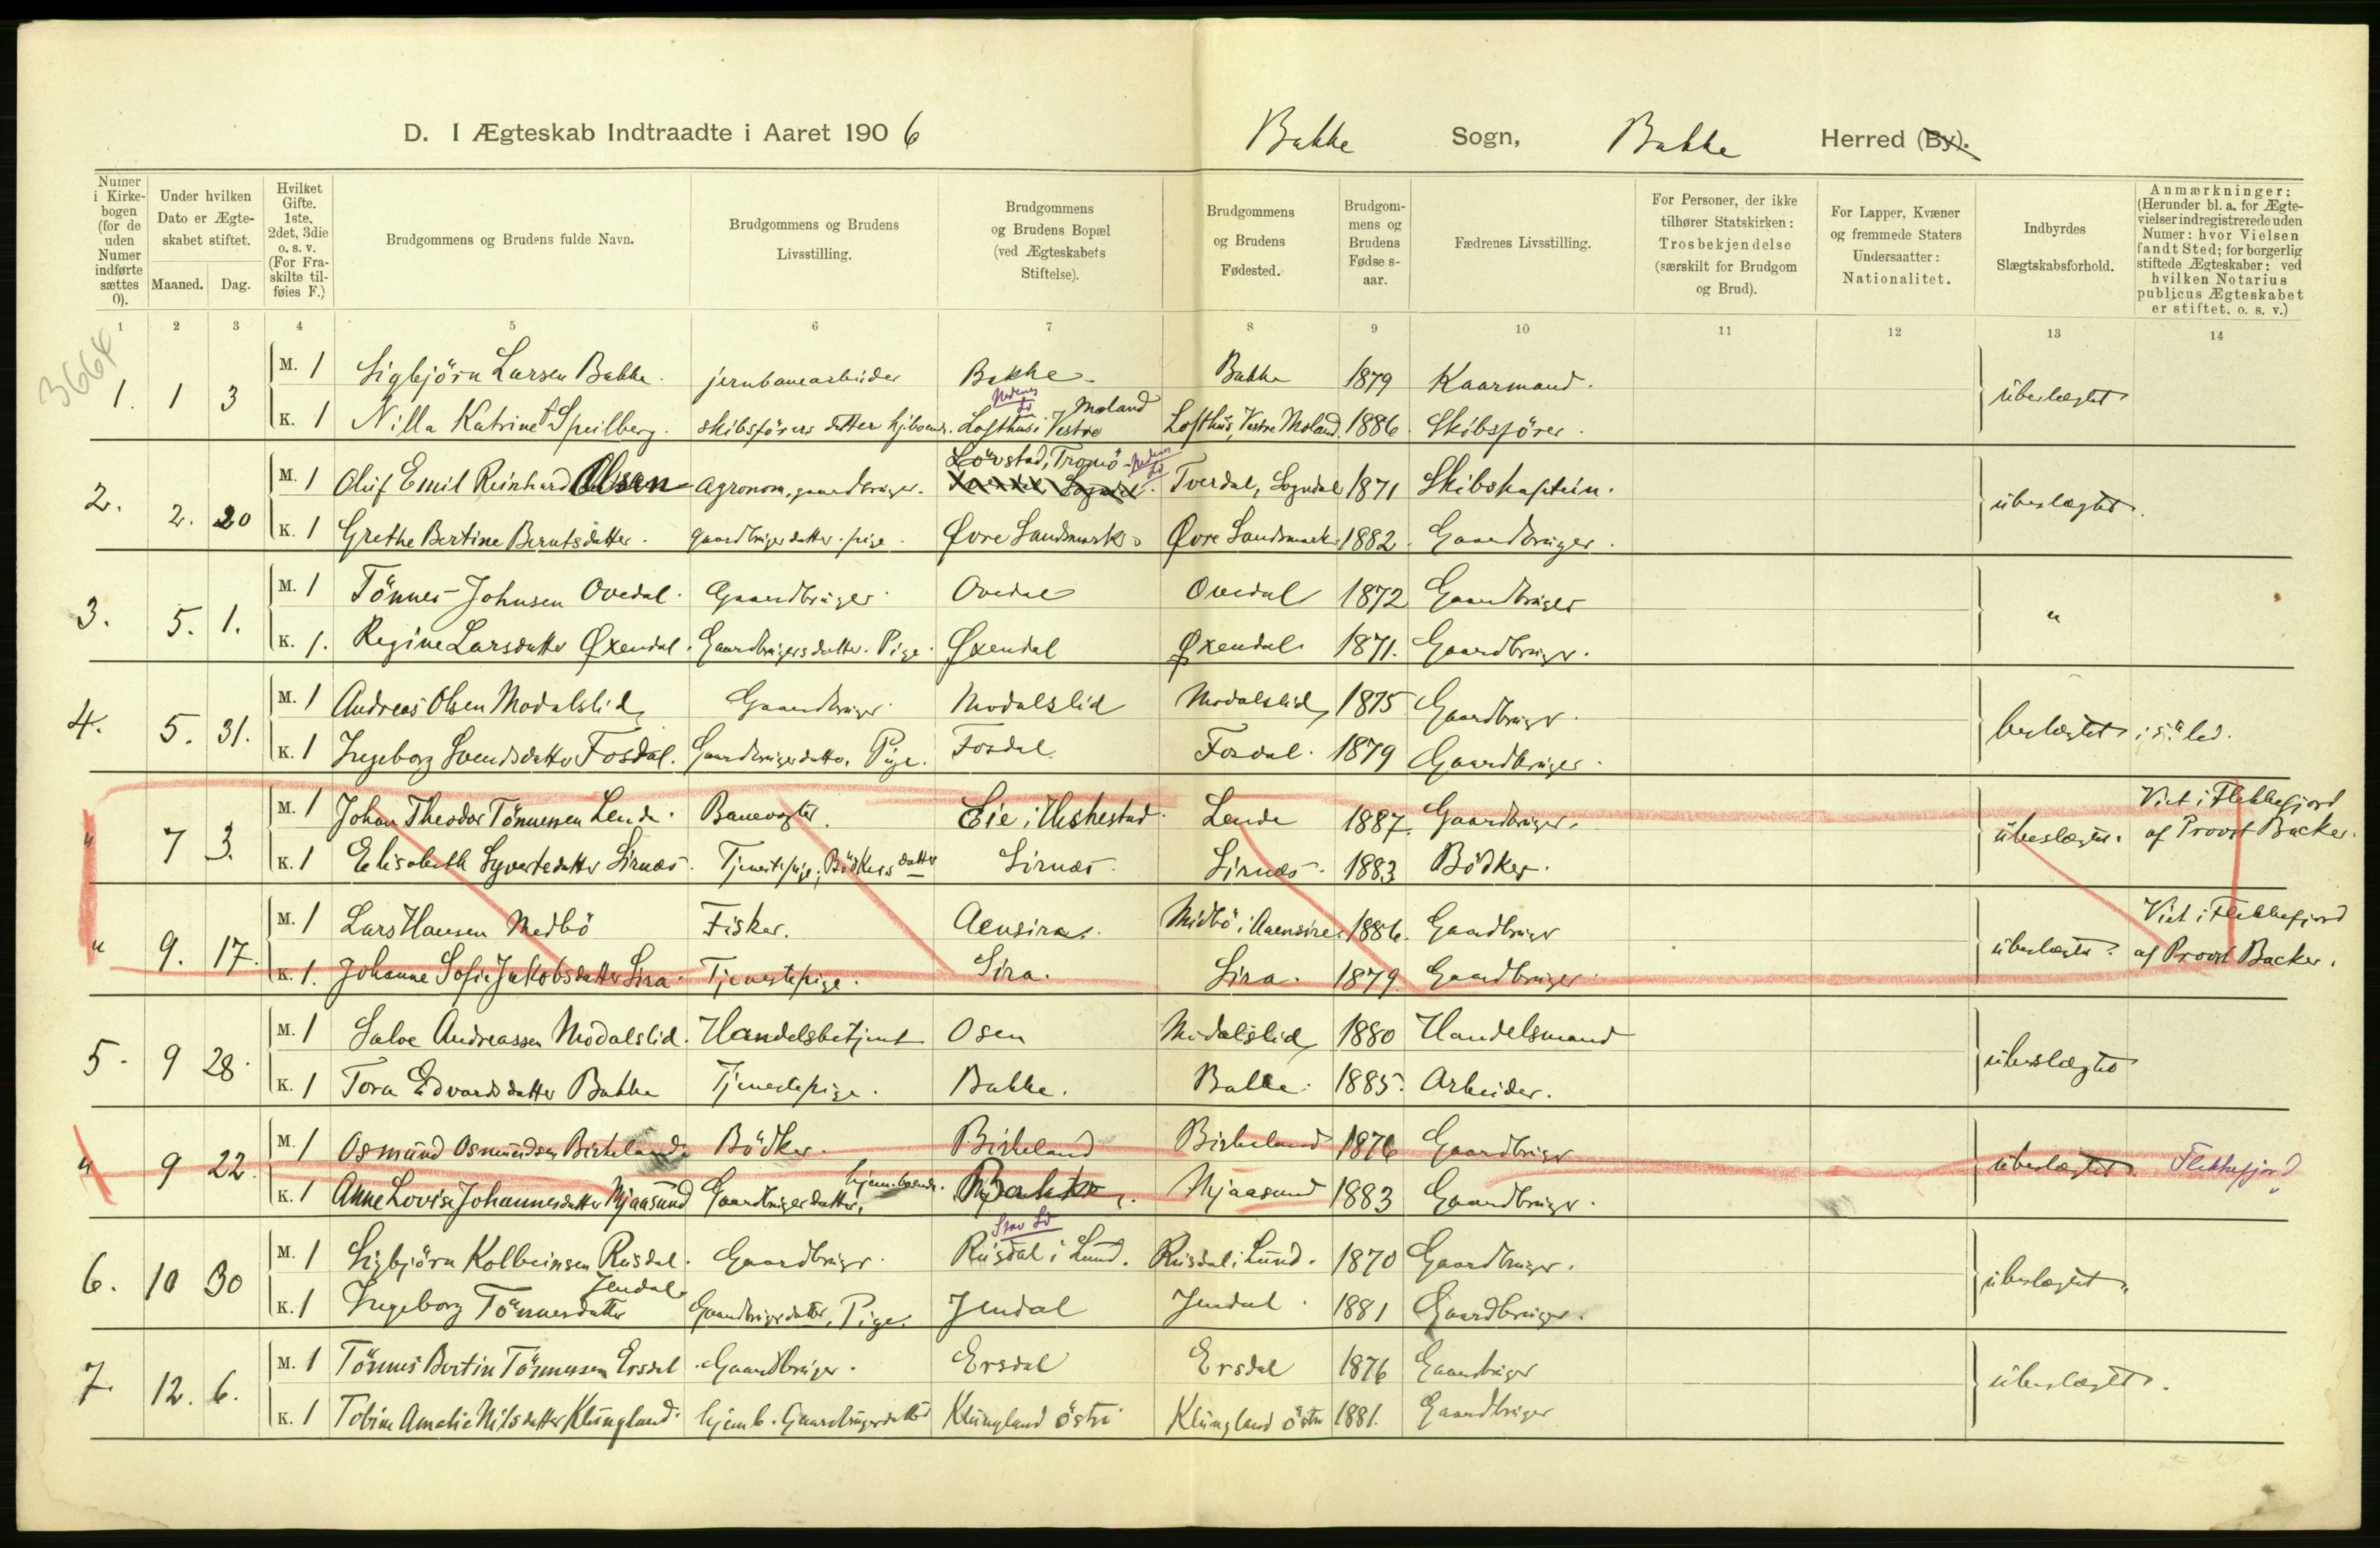 D. I Ægteskab Indtraadte i Aaret 1906 Bakke Sogn, Bakke Herred (By).
Numer i Kirkebogen (for de uden Numer indførte sættes 0).
Under hvilken Dato er Ægteskabet stiftet.
Maaned. Dag.
Hvilket Gifte. 1ste, 2det, 3die o. s. v. (For Fraskilte tilføies F.)
Brudgommens og Brudens fulde Navn.
Brudgommens og Brudens Livsstilling.
Brudgommens og Brudens Bopæl (ved Ægteskabets Stiftelse).
Brudgommens og Brudens Fødested.
Brudgommens og Brudens Fødselsaar.
Fædrenes Livsstilling.
For Personer, der ikke tilhører Statskirken: Trosbekjendelse (særskilt for Brudgom og Brud).
For Lapper, Kvæner og fremmede Staters Undersaatter: Nationalitet.
Indbyrdes Slægtskabsforhold.
Anmærkninger: (Herunder bl. a. for Ægtevielser indregistrerede uden Numer: hvor Vielsen fandt Sted; for borgerlig stiftede Ægteskaber: ved hvilken Notarius publicus Ægteskabet er stiftet. o. s. v.)
1 2 3 4 5 6 7 8 9 10 11 12 13 14
3664
1. 1 3 M. 1 Sigbjörn Larsen Bakke. jernbanearbeider Bakke. Bakke 1879 Kaarmand. übeslægtet
K. 1 Nilla Katrine Speilberg. Skibsförers datter hjboende. Nedenes Lofthus i Vestre Moland Lofthus, Vestre Moland. 1886. Skibsförer.
2. 2. 20 M. 1 Oluf Emil Reinhard Olsen Agronom, gaardbrüger. Lövstad, Tromö. Nedenes Tverdal, Sogndal 1871 Skibskaptein. übeslægtet.
K. 1 Grethe Bertine Berntsdatter. gaardbrügerdatter. pige. Øvre Landsmark. Øvre Landsmark 1882. Gaardbrüger.
3. 5. 1. M. 1 Tönnes Johnsen Ovedal. Gaardbrüger. Ovedal Ovedal 1872 Gaardbrüger "
K. 1. Regine Larsdatter Øxendal. Gaardbrügersdatter. Pige. Øxendal Øxendal. 1871. Gaardbrüger.
4. 5. 31. M. 1 Andreas Olsen Modalslid, Gaardbrüger. Modalslid Modalslid, 1875 Gaardbrüger. beslægtet i 5te led.
K. 1 Ingeborg Svendsdatter Fosdal. Gaardbrügerdatter. Pige. Fosdal Fosdal. 1879 Gaardbrüger.
" 7 3. M. 1 Johan Theodor Tönnesen Lende. Banevogter. Eie i Heskestad. Lende 1887. Gaardbrüger. übeslægtet. Viet i Flekkefjord af Provst Backer.
K. 1 Elisabeth Syvertsdatter Sirnæs. Tjenestepige, Bödkers datter Sirnæs. Sirnæs. 1883 Bödker.
" 9. 17. M. 1 Lars Hansen Medbö Fisker. Aensira. Midbö i Aaensire. 1886. Gaardbrüger übeslægtet. Viet i Flekkefjord af Provst Backer.
K. 1. Johanne Sofie Jakobsdatter Sira. Tjenestepige. Sira. Sira. 1879. Gaardbrüger.
5. 9 28. M. 1 Salve Andreassen Modalslid. Handelsbetjent Osen Modalslid, 1880 Handelsmand übeslægtet
K. 1 Tora Edvardsdatter Bakke Tjenestepige. Bakke. Bakke. 1885. Arbeider.
" 9 22. M. 1 Osmünd Osmündsen Birkeland. Bödker. Birkeland Birkeland 1876 Gaardbrüger übeslægtet. Flekkefjord
K. 1 Anne Lovise Johannesdatter Mjaasünd Gaardbrügerdatter, hjemboende. Bakke. Mjaasund 1883 Gaardbrüger.
6. 10 30 M. 1 Sigbjörn Kolbeinsen Rüsdal. Gaardbrüger. Rüsdal i Lünd. Rüsdal i Lünd. 1870 Gaardbrüger. übeslægtet.
K. 1 Ingeborg Tönnesdatter Jendal. Gaardbrügerdatter. Pige. Jendal Jendal. 1881 Gaardbrüger.
7. 12. 6. M. 1 Tönnes Bertin Tönnessen Ersdal. Gaardbrüger. Ersdal Ersdal 1876 Gaardbrüger übeslægtet.
K. 1 Tobine Amalie Nilsdatter Klüngland. hjemb. Gaardbrügerdatter Klüngland östre Klüngland östre 1881. Gaardbrüger